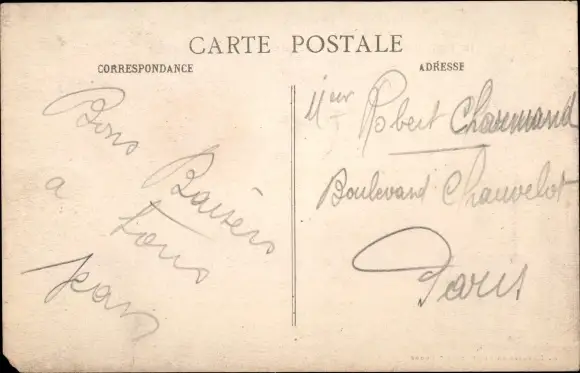 CARTE POSTALE
CORRESPONDANCE
ADRESSE
Bons
Baisers
a tous
Jean
Robert Charmand
Boulevard Chauvelot
Paris